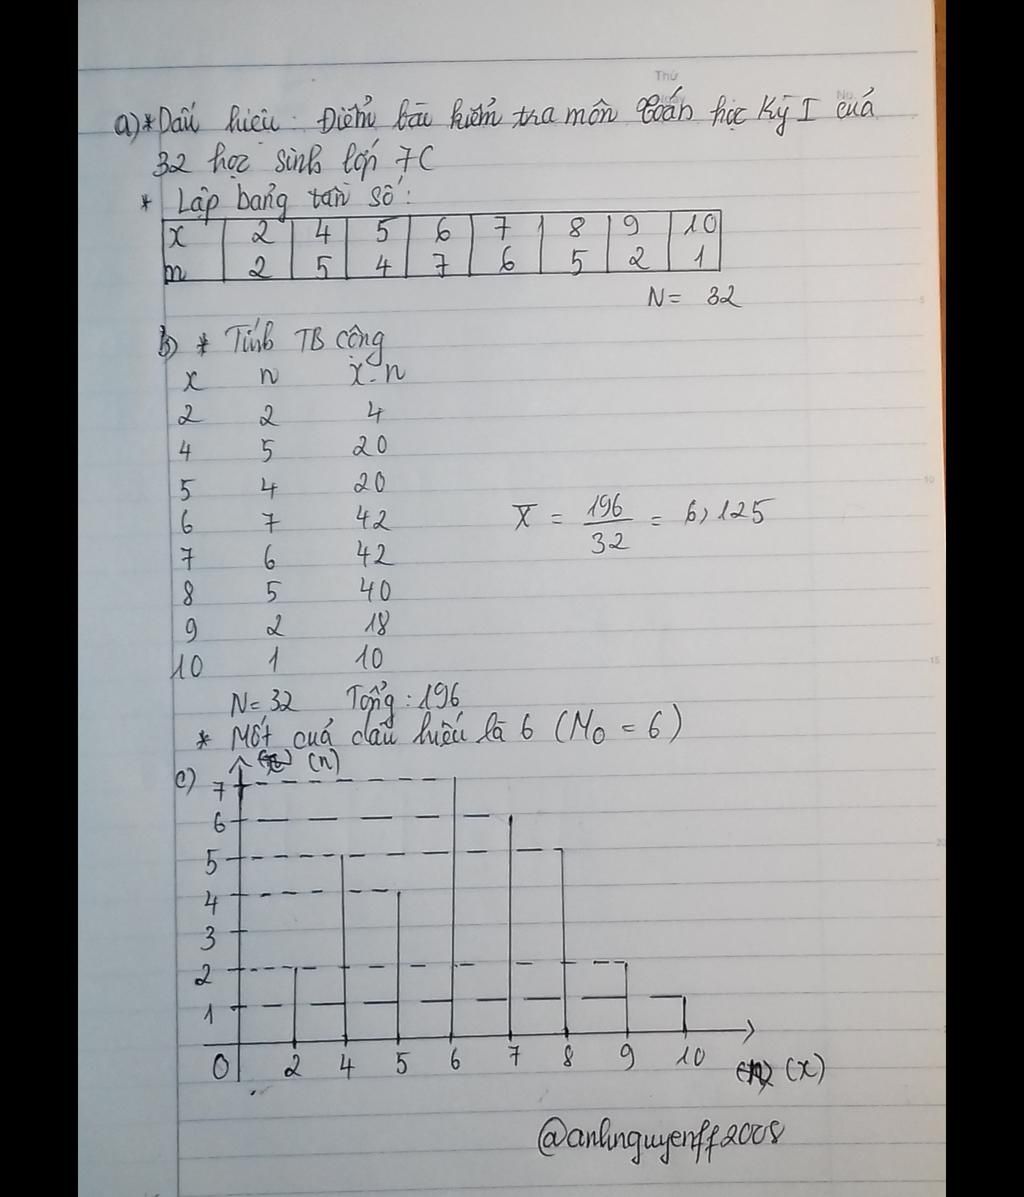 Thứ
No.
a) * Dấu hiệu: Điểm bài kiểm tra môn toán học kỳ I của
32 học sinh lớp 7C
* Lập bảng tần số:
x 2 4 5 6 7 8 9 10
n 2 5 4 7 6 5 2 1
N = 32
b) * Tính TB cộng
x n x.n
2 2 4
4 5 20
5 4 20
6 7 42
7 6 42
8 5 40
9 2 18
10 1 10
X̄ = 196/32 = 6,125
N = 32 Tổng: 196
* Mốt của dấu hiệu là 6 (M₀ = 6)
c) (n)
7
6
5
4
3
2
1
0 2 4 5 6 7 8 9 10 (x)
@anhnguyenff2008